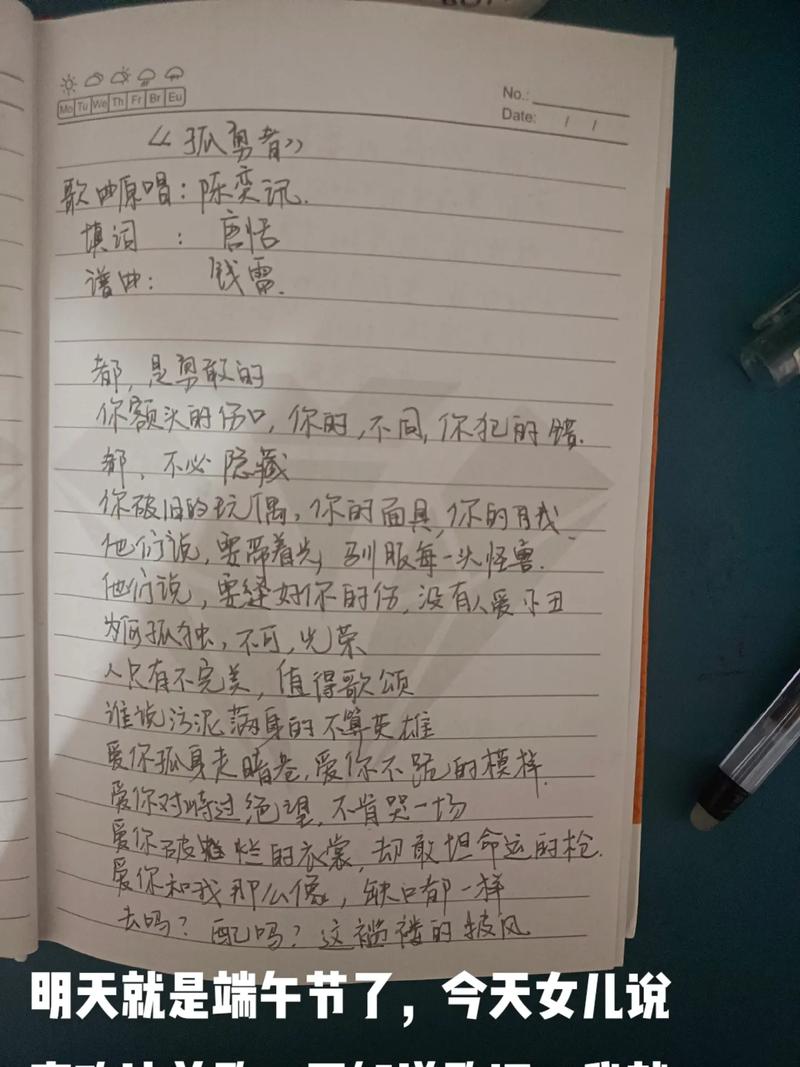 BOY
Mo Tu We Th Fr Br Eu
No.:
Date: / /
《孤勇者》
歌曲原唱:陈奕讯.
填词 : 唐恬
谱曲: 钱雷.
都,是勇敢的
你额头的伤口,你的,不同,你犯的错.
都,不必隐藏
你破旧的玩偶,你的面具,你的自我.
他们说,要带着光,驯服每一头怪兽.
他们说,要缝好你的伤,没有人爱小丑
为何孤独,不可,光荣
人只有不完美,值得歌颂
谁说污泥满身的不算英雄
爱你孤身走暗巷,爱你不跪的模样.
爱你对峙过绝望,不肯哭一场
爱你破烂的衣裳,却敢坦命运的枪.
爱你和我那么像,缺口都一样
去吗?配吗?这褴褛的披风
明天就是端午节了,今天女儿说